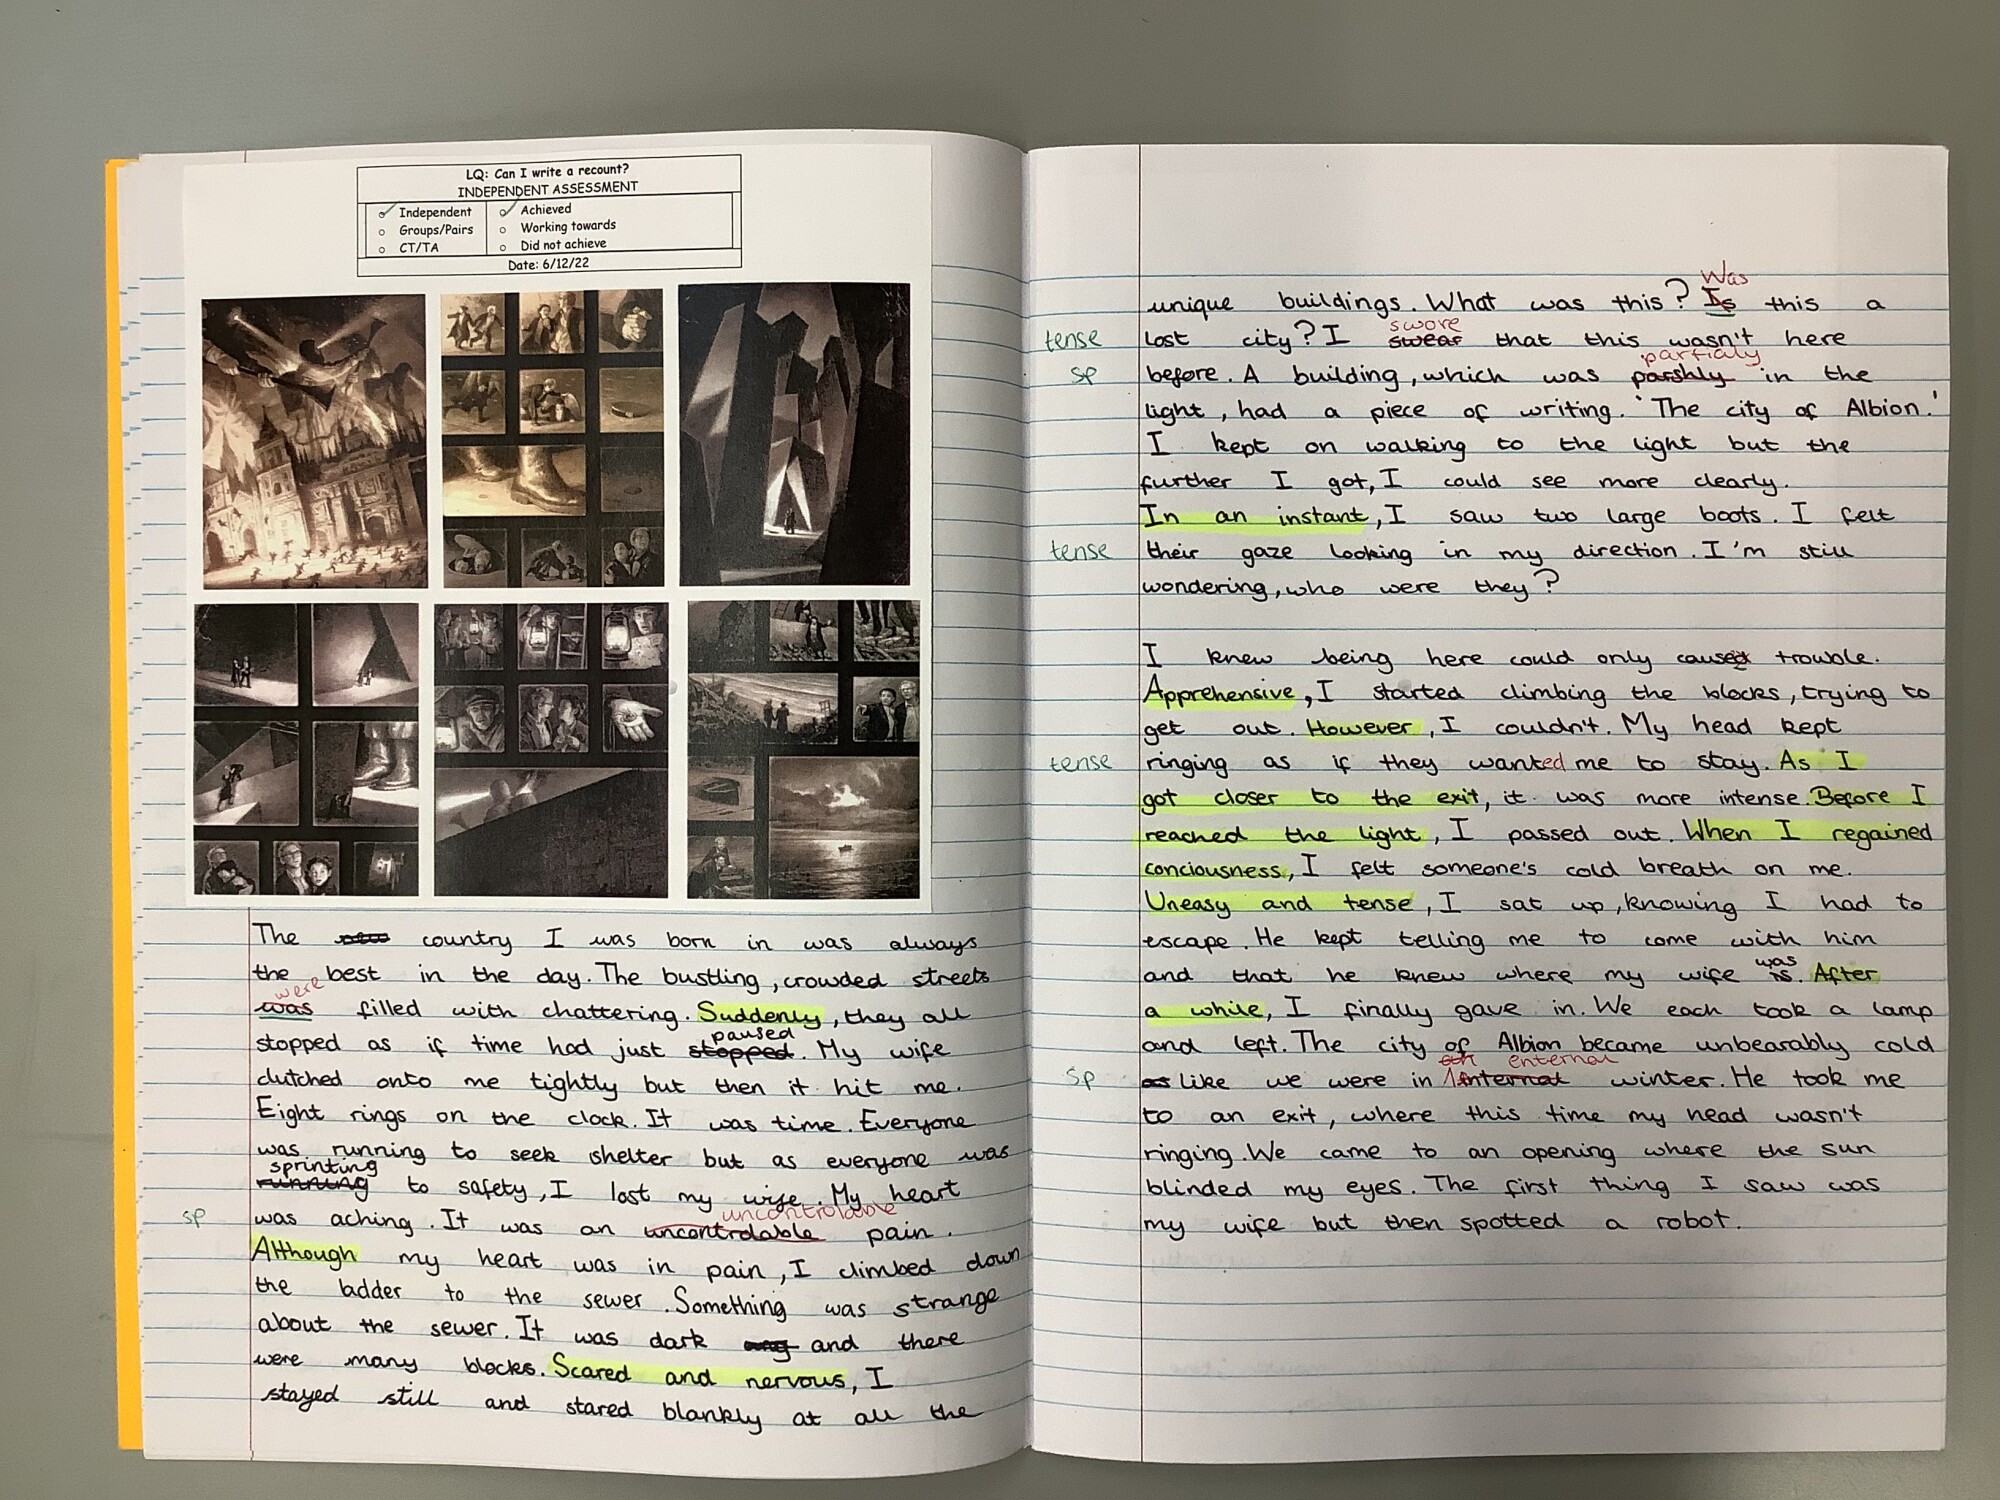 LQ: Can I write a recount?
INDEPENDENT ASSESSMENT
Independent
Groups/Pairs
CT/TA
Achieved
Working towards
Did not achieve
Date: 6/12/22
The country I was born in was always
the best in the day. The bustling, crowded streets
were
was filled with chattering. Suddenly, they all
paused
stopped as if time had just stopped. My wife
clutched onto me tightly but then it hit me.
Eight rings on the clock. It was time. Everyone
was running to seek shelter but as everyone was
sprinting
running to safety, I lost my wife. My heart
uncontrolable
sp was aching. It was an uncontrolable pain.
Although my heart was in pain, I climbed down
the ladder to the sewer. Something was strange
about the sewer. It was dark and there
were many blocks. Scared and nervous, I
stayed still and stared blankly at all the
Was
unique buildings. What was this? Is this a
swore
tense lost city? I swear that this wasn't here
partialy
sp before. A building, which was parshly in the
light, had a piece of writing. 'The city of Albion.'
I kept on walking to the light but the
further I got, I could see more clearly.
In an instant, I saw two large boots. I felt
tense their gaze looking in my direction. I'm still
wondering, who were they?
I knew being here could only cause trouble.
Apprehensive, I started climbing the blocks, trying to
get out. However, I couldn't. My head kept
tense ringing as if they wanted me to stay. As I
got closer to the exit, it was more intense. Before I
reached the light, I passed out. When I regained
conciousness, I felt someone's cold breath on me.
Uneasy and tense, I sat up, knowing I had to
escape. He kept telling me to come with him
was
and that he knew where my wife is. After
a while, I finally gave in. We each took a lamp
and left. The city of Albion became unbearably cold
enternal
sp as like we were in internal winter. He took me
to an exit, where this time my head wasn't
ringing. We came to an opening where the sun
blinded my eyes. The first thing I saw was
my wife but then spotted a robot.